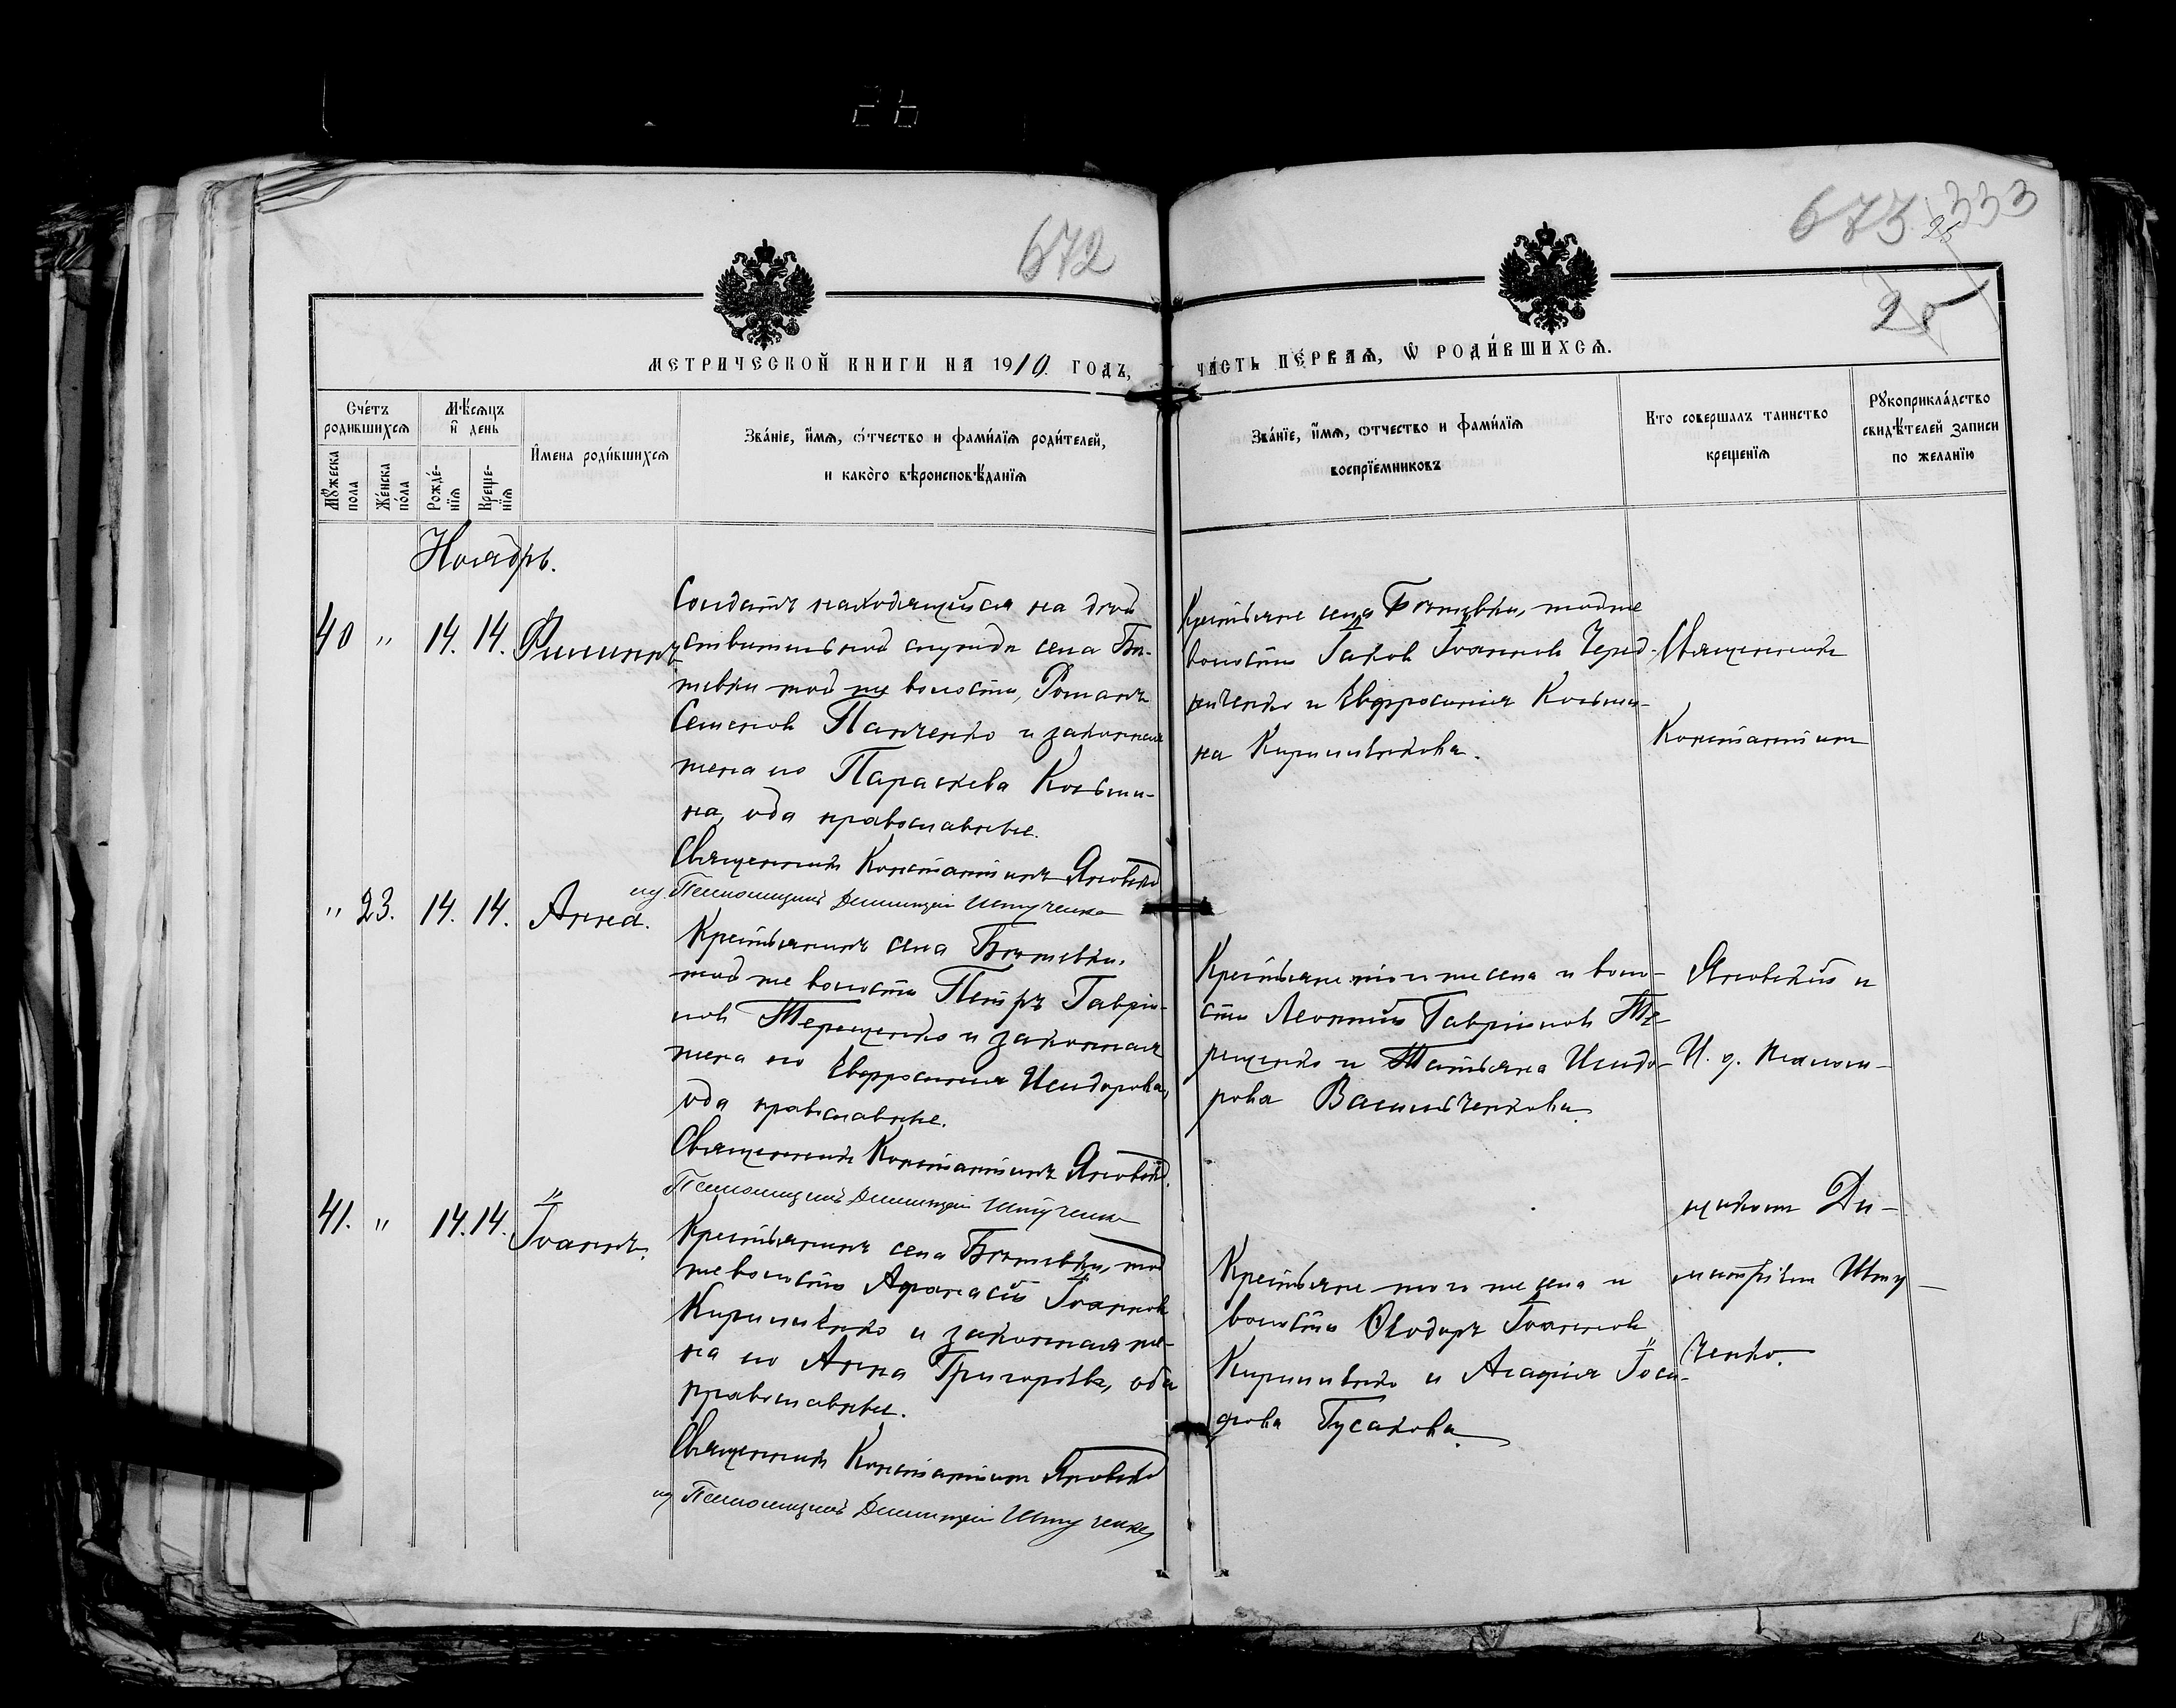 672
673. 333
25
28
МЕТРИЧЕСКОЙ КНИГИ НА 1910 ГОДЪ,
ЧА́СТЬ ПЕ́РВАѦ, Ѿ РОДИ́ВШИХСѦ.
Сче́тъ родившихсѧ
Мꙋ́жеска пола
Же́нска по́ла
Мѣ́сѧцъ и҆ день
Рожде́нїѧ
Креще́нїѧ
И҆мена роди́вшихсѧ
Зва́нїе, и҆́мѧ, ѻ҆́тчество и фами́лїѧ роди́телей,
и како́го вѣроисповѣ́данїѧ
Зва́нїе, и҆́мѧ, ѻтчество и фами́лїѧ
воспрїе́мниковъ
Кто совершалъ таинство
крещенїѧ
Рꙋкоприкла́дство
свидѣ́телей записи
по желанїю
Ноябрь.
40 " 14. 14. Филиппъ
Солдатъ находящійся на дѣй
ствительной службѣ села
тойже волости, Романъ
Семеновъ Панченко и законная
жена его Параскева Косьми-
на, оба православные.
Священникъ Константинъ Яновскій
ид. Псаломщика Димитрій Штученко
Крестьяне села тойже
волости Іаковъ Іоанновъ
и Евфросинія Косьми-
на Кириллѣнкова.
Священникъ
Константинъ
" 23. 14. 14. Анна.
Крестьянинъ села
той же волости Петръ Гаврiи-
ловъ Терещенко и законная
жена его Евфросинія Исидорова,
оба православные.
Священникъ Константинъ Яновскій.
Псаломщика Димитрій Штученко
Крестьяне того же села и воло-
сти Леонтій Гавріиловъ Те-
рещенко и Татьяна Исидо-
рова Васильченкова.
Яновскій и
И. д. псалом-
41. " 14. 14. Іоаннъ.
Крестьянинъ села той
же волости Аѳанасій Іоанновъ
Кириллѣнко и законная же-
на его Анна Григорьева, оба
православные.
Священникъ Константинъ Яновскій
ид Псаломщика Димитрій Штученко
Крестьяне того же села и
волости Ѳеодоръ Іоанновъ
Кириллѣнко и Агафія Іоси-
фова Гусакова.
щикомъ Ди-
митріем Шту-
ченко.